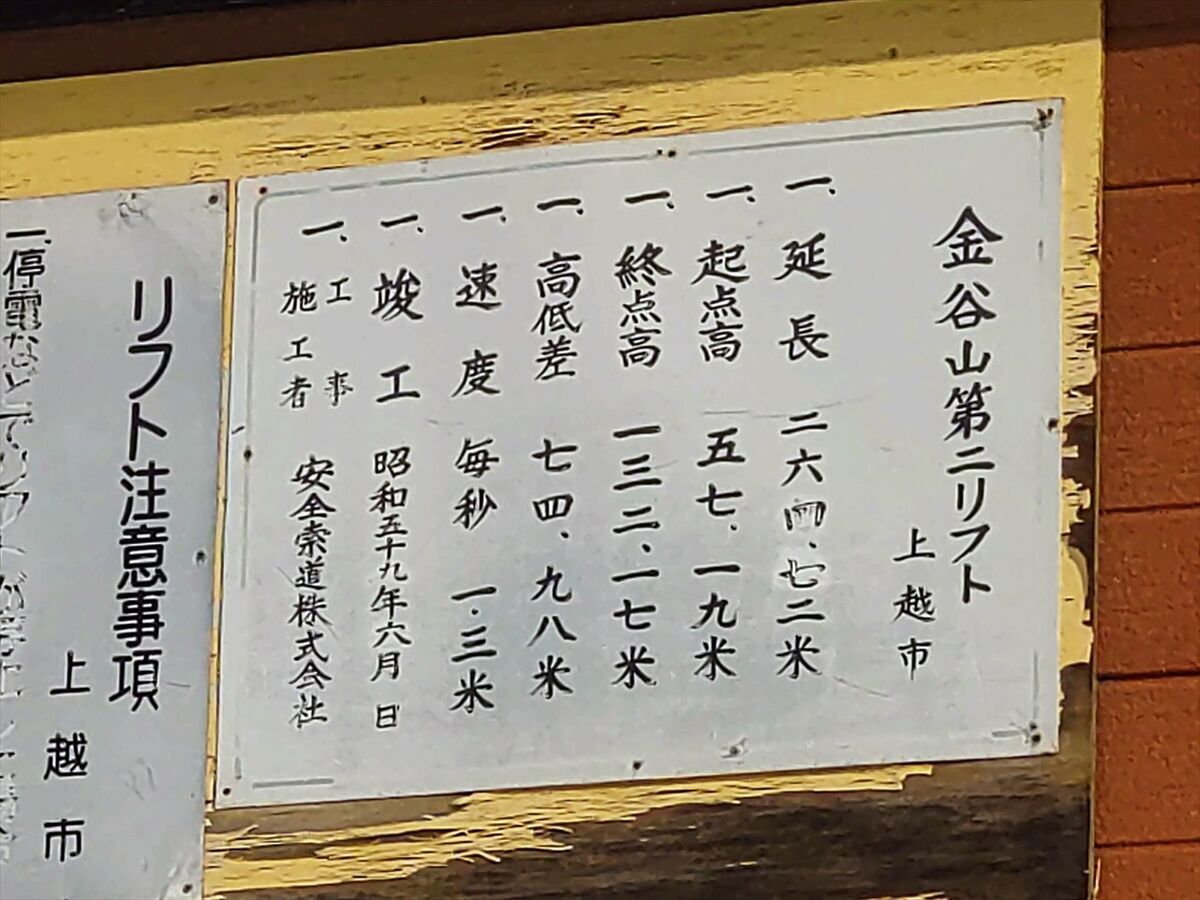 金谷山第二リフト
上越市
一、延長 二六四、七二米
一、起点高 五七、一九米
一、終点高 一三二、一七米
一、高低差 七四、九八米
一、速度 毎秒 一、三米
一、竣工 昭和五十九年六月 日
一、工事施工者 安全索道株式会社
リフト注意事項
上越市
一、停電などで